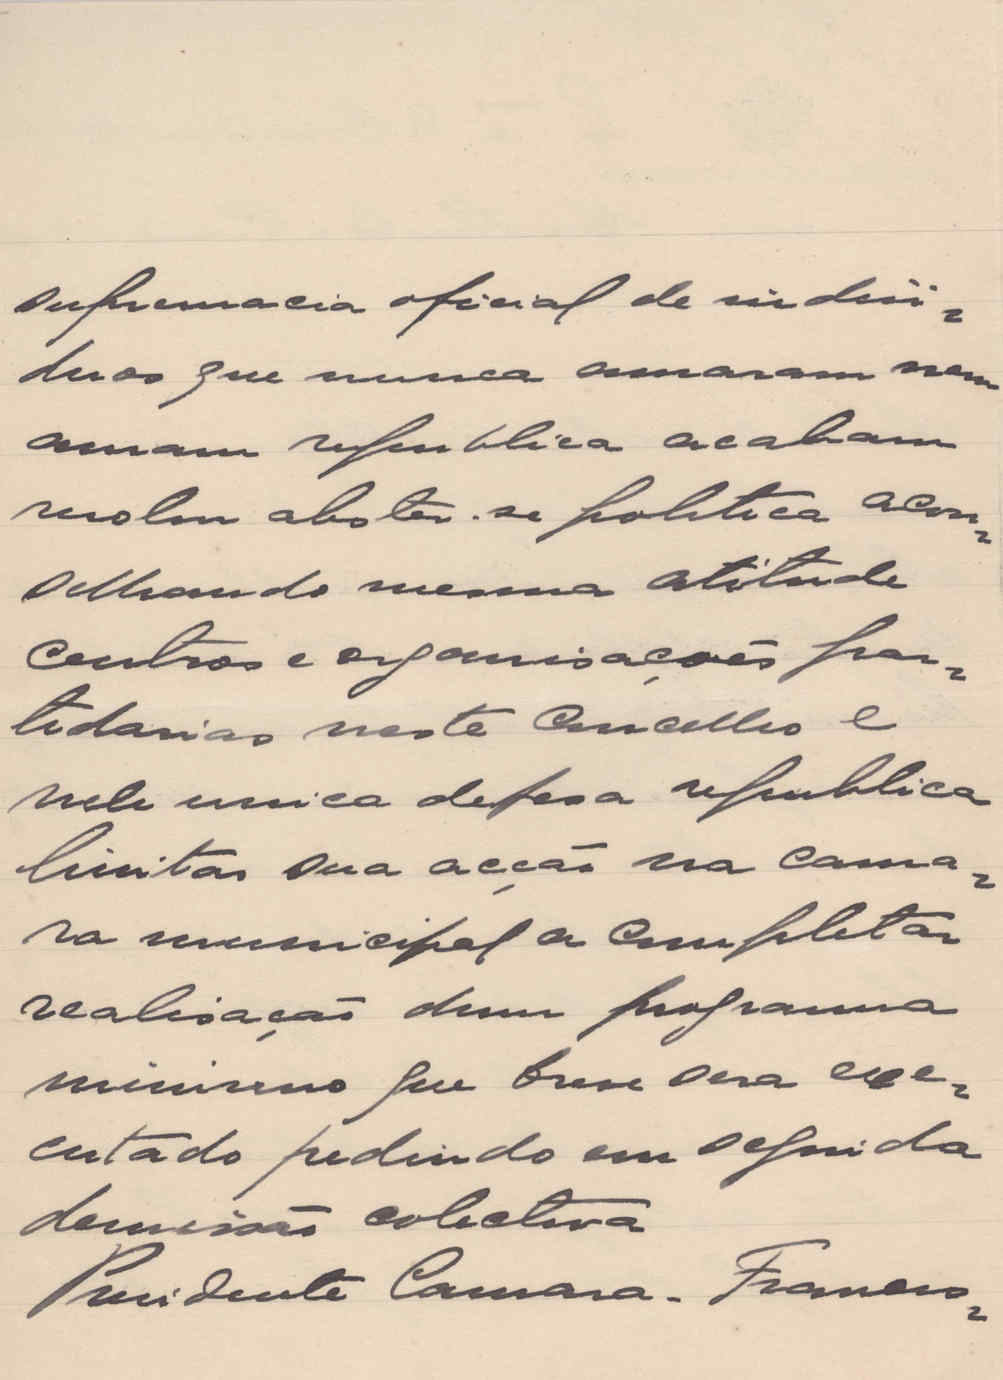 supremacia oficial de indivi-
duos que nunca amaram nem
amam republica acabam
resolver abster-se politica acon-
selhando mesma atitude
centros e organisações par-
tidarias neste concelho e
nele unica defesa republica
limitar sua acção na cama-
ra municipal a completar
realisação dum programa
minimo que breve sera exe-
cutado pedindo em seguida
demissão colectiva
Presidente Camara - Francis-